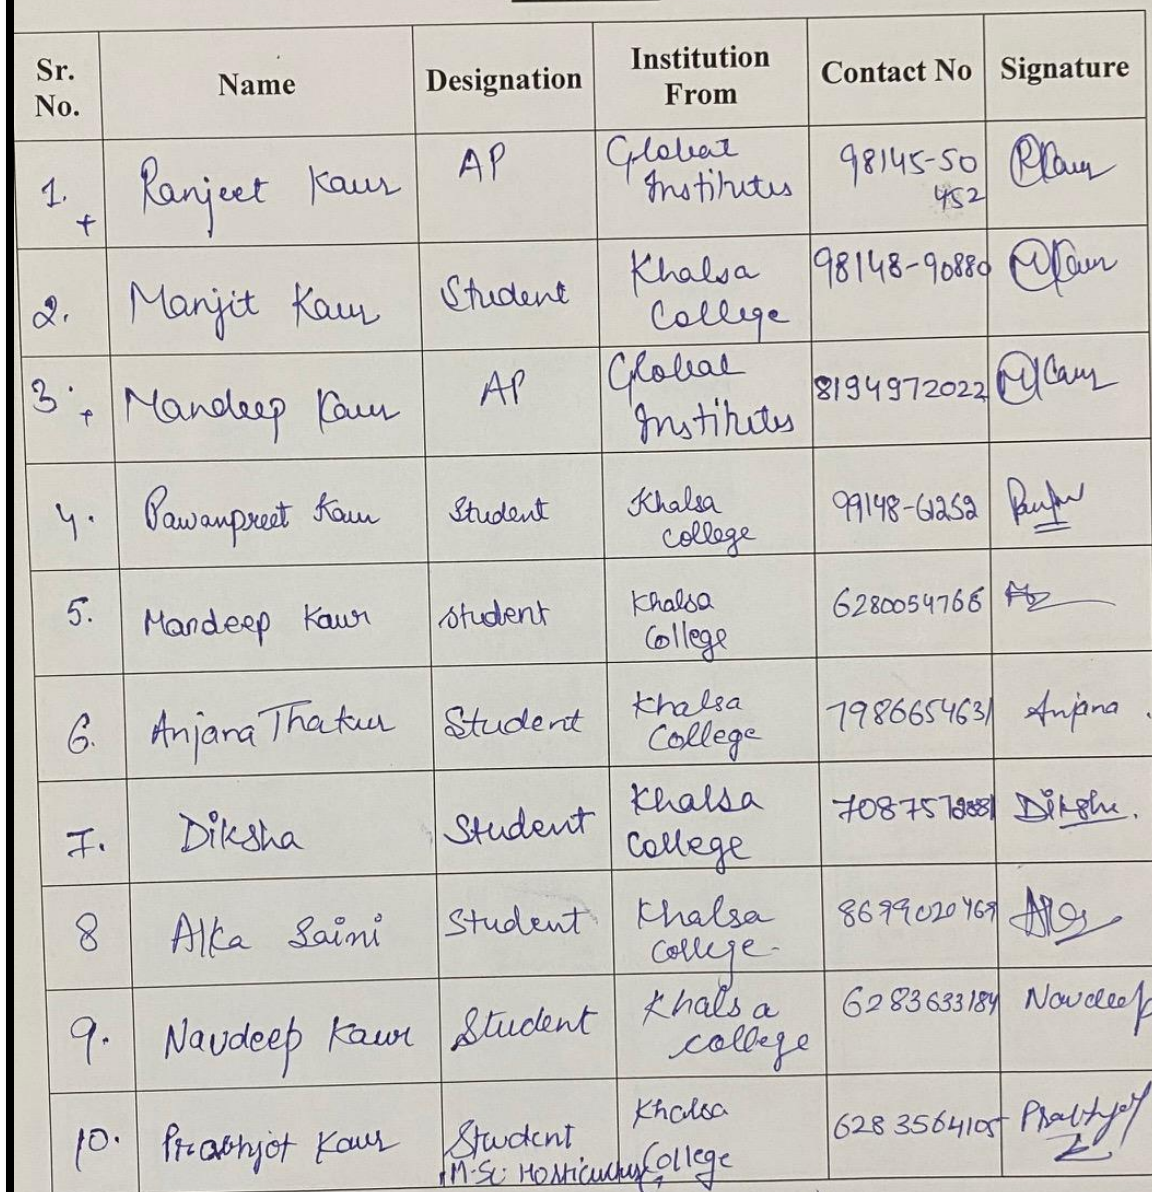 Sr. No. Name Designation Institution From Contact No Signature
1. + Ranjeet Kaur AP Global Institutes 98145-50 452 RKaur
2. Manjit Kaur Student Khalsa College 98148-90880 MKaur
3. + Mandeep Kaur AP Global Institutes 8194972022 MKaur
4. Pawanpreet Kaur Student Khalsa college 99148-61252
5. Mandeep Kaur student Khalsa College 6280054766
6. Anjana Thakur Student Khalsa College 7986654631 Anjana
7. Diksha Student Khalsa College Diksha.
8 Alka Saini Student Khalsa College 8699020469
9. Navdeep Kaur Student Khalsa college 6283633184 Navdeep
10. Prabhjot Kaur Student M.Sc. Horticulture Khalsa College 6283564105 Prabhjot